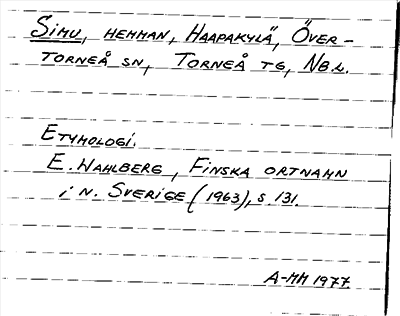 SIMU, HEMMAN, HAAPAKYLÄ, ÖVER-
TORNEÅ SN, TORNEÅ TG, NB L.
ETYMOLOGI.
E. WAHLBERG, FINSKA ORTNAMN
I N. SVERIGE (1963), S. 131.
A-MM 1977